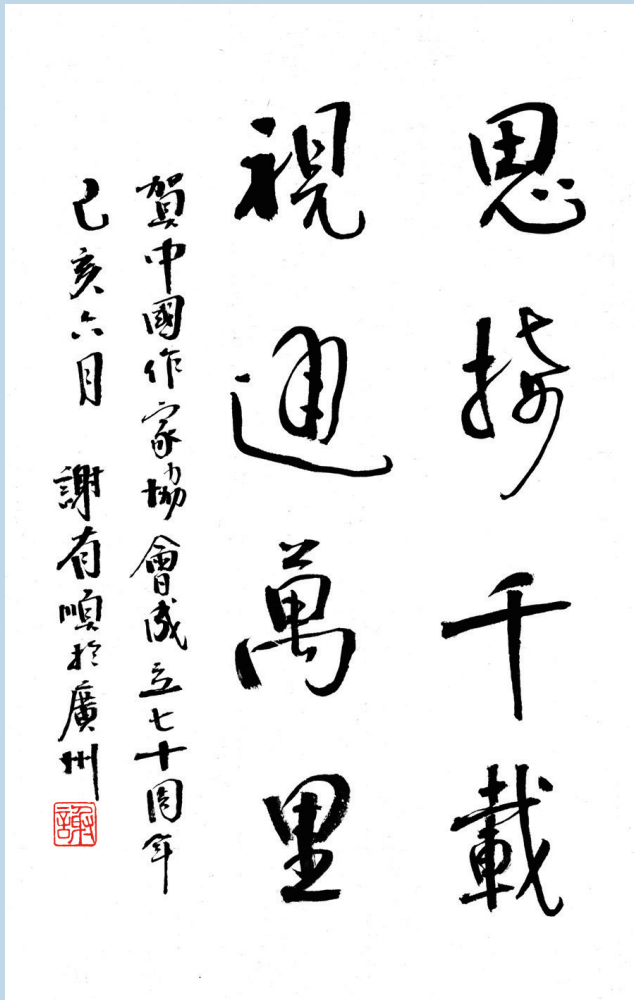 思接千載
視通萬里
賀中國作家協會成立七十周年
己亥六月 謝有順於廣州
謝